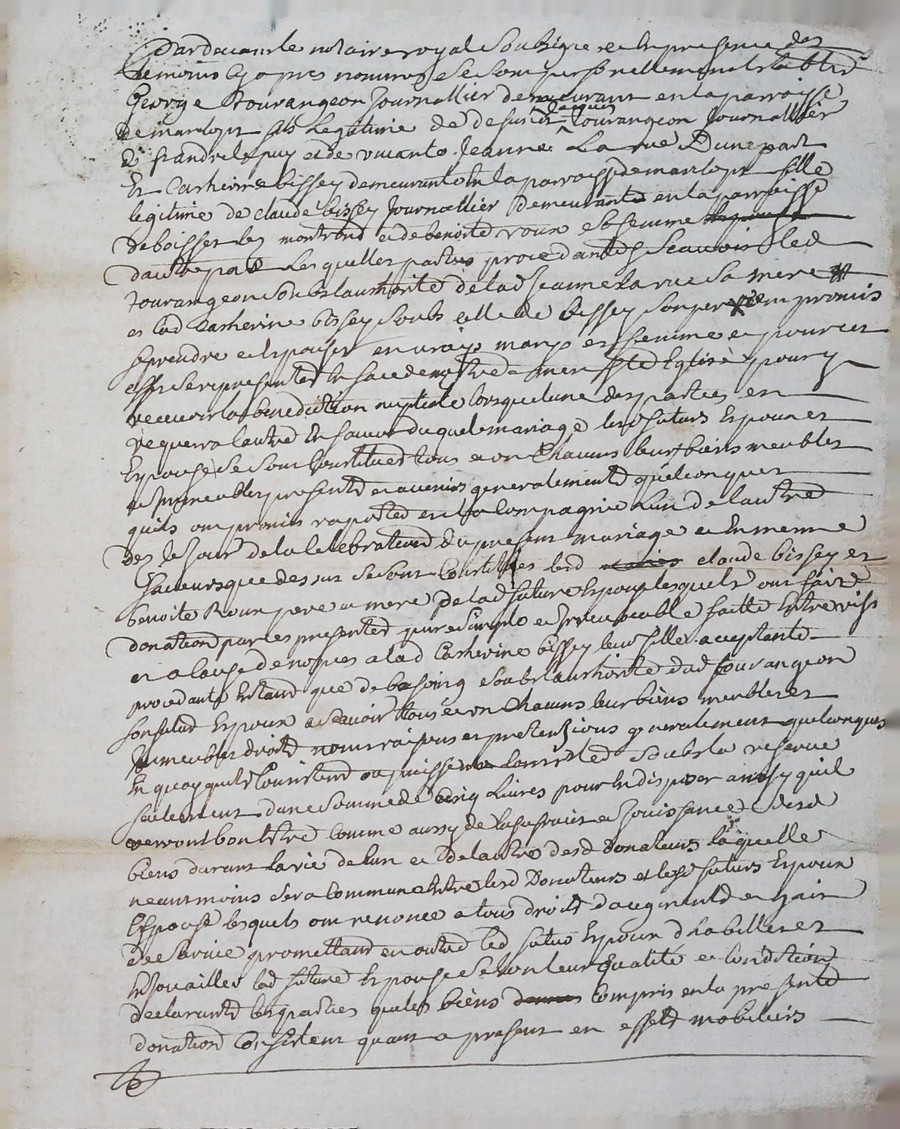 Pardevant le notaire royal soubsigné et en presence des
temoins cy apres nommes se sont personnellement establis
George Tourangeon Journallier demeurant en la parroisse
de marlopt fils legitime de deffunt Jacques Tourangeon Journallier
de st andré le puy et de vivante Jeanne La rue Dune part
Et Catherine bissey demeurante en la parroisse de marlopt fille
legitime de claude bissey Journallier demeurant en la parroisse
de boisset les montrond et de benoite roux sa femme
dautre part Lesquelles parties procedantes sçavoir led
tourangeon soubs lauthorité de lad Jeanne la rue sa mere
et lad Catherine bissey soubs celle de bissey son pere ont promis
se prendre et Epouser en vrays marys et femme et pour cet
effet se representer En face de notre mere ste Eglise pour y
recevoir la benediction nuptiale lorsque lune des parties en
requerra lautre En faveur duquel mariage lesd futurs Epoux et
Epouse se sont Constitues tous et un Chacuns leurs biens meubles
et Immeubles presents et avenirs generalement quelconques
quils ont promis raporter en la Compagnie lun de lautre
des le Jour de la Celebration du present mariage et En meme
faveurs que dessus se sont Constitues led claude bissey et
benoite Roux pere et mere de lad future Epouse lesquels ont faite
donation par les presentes pure simple et Irrevocable faitte Entre vifs
et a Cause de nopces a lad Catherine bissey leur fille acceptante
procedante En tant que de besoing soubs lauthorité dud tourangeon
son futur Epoux a scavoir tous et un Chacuns leurs biens meubles et
Immeubles droits noms raisons et pretentions generalement quelconques
En quoy quils Consistent ou puissent Consister soubs la reserve
seulement dune somme de Cinq Livres pour En disposer ainsy quil
verront bon Etre comme aussy de lusufruit et Jouissance desd
biens durant la vie de lun et de lautre desd donateurs laquelle
neantmoins sera Commune Entre lesd Donateurs et lesd futurs Epoux
Epouse lesquels ont renonce a tous droits daugment et gain
de survie promettant en outre led futur Epoux d habiller et
En Jouailler lad future Epouse selon leur qualité et Condition
declarants les parties que les biens compris en la presente
donation Consistent quant a present en effets mobiliers